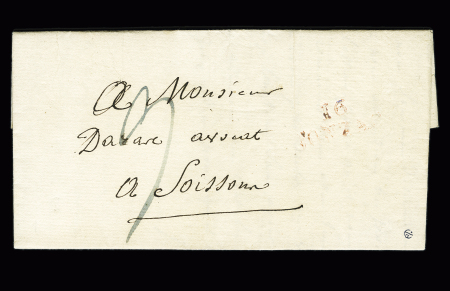 A Monsieur
Dazare avouat
A Soissons
16